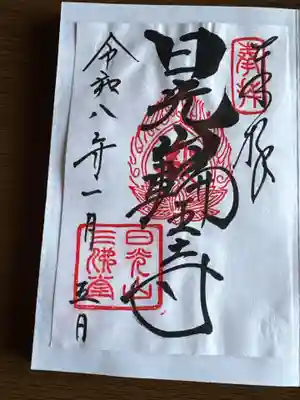 奉拝
日光山
輪王寺
令和八年一月五日
日光山
三佛堂